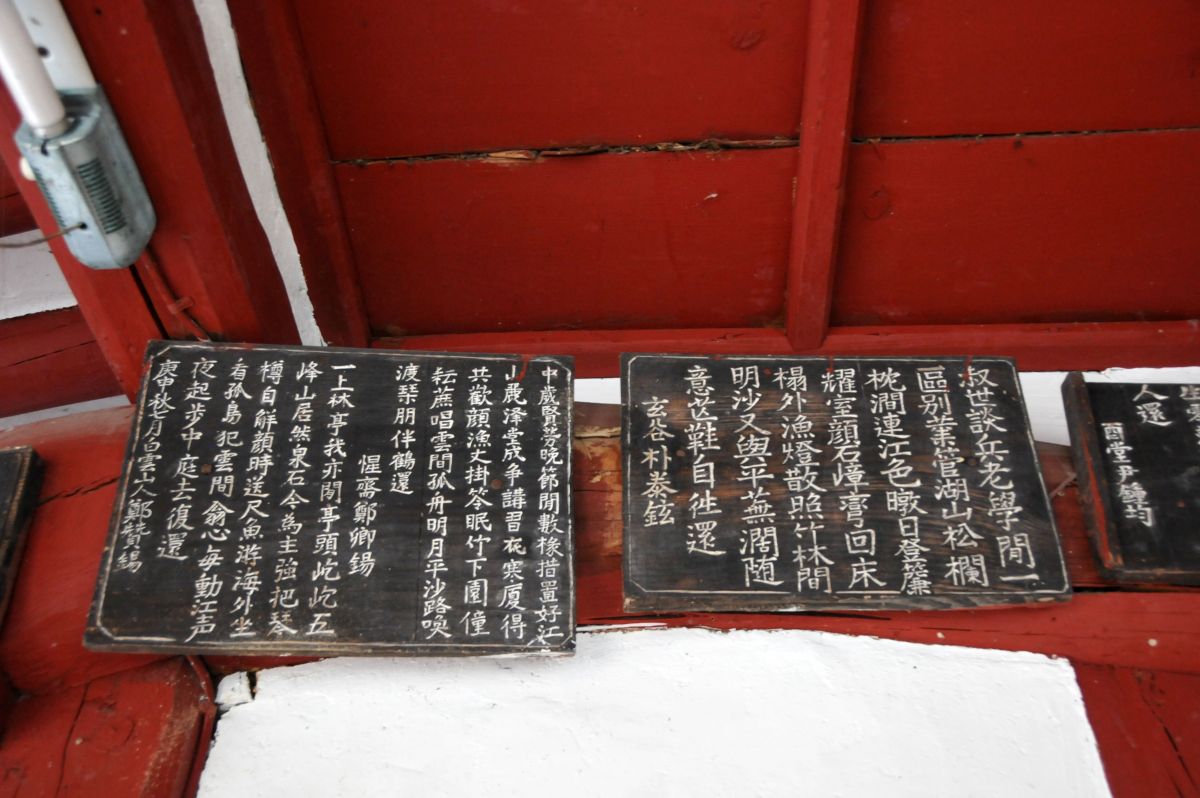 人還
酉堂尹鍾均
叔世談兵老學閒一
區別業管湖山松欄
枕澗連江色暾日登簾
耀室顔石嶂 回床
榻外漁燈散照竹林間
明沙又與平蕪濶随
意芒鞋自徃還
玄谷朴泰鉉
中歲賢勞晩節閒數椽措置好江
山麗澤堂成爭講習 寒廈得
共歡顔漁丈掛笭眠竹下園僮
耘蔗唱雲間孤舟明月平沙路喚
渡琹朋伴鶴還
惺齋鄭卿錫
一上林亭我亦閒亭頭屹屹五
峰山居然泉石今為主強把琴
樽自觧顔時送尺魚游海外坐
看孤島犯雲間翁心每動江声
夜起步中庭去復還
庚申秋七月白雲山人鄭 錫